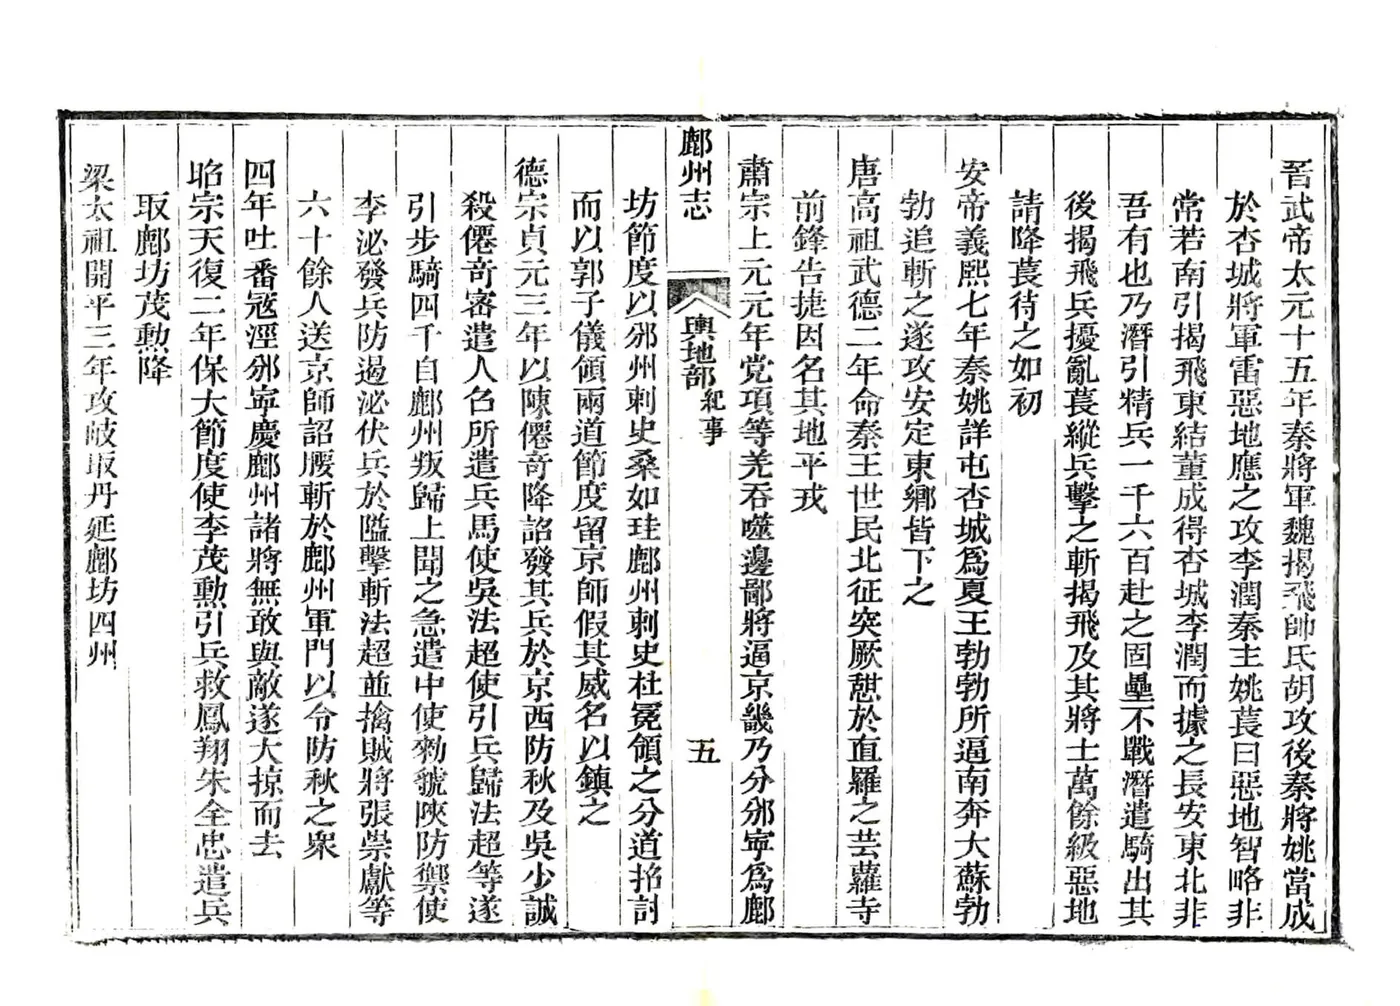 晉武帝太元十五年秦將軍魏揭飛帥氐胡攻後秦將姚當成
於杏城將軍雷惡地應之攻李潤秦主姚萇曰惡地智略非
常若南引揭飛東結董成得杏城李潤而據之長安東北非
吾有也乃潛引精兵一千六百赴之固壘不戰潛遣騎出其
後揭飛兵擾亂萇縱兵擊之斬揭飛及其將士萬餘級惡地
請降萇待之如初
安帝義熙七年秦姚詳屯杏城爲夏王勃勃所逼南奔大蘇勃
勃追斬之遂攻安定東鄉皆下之
唐高祖武德二年命秦王世民北征突厥憇於直羅之芸蘿寺
前鋒告捷因名其地平戎
肅宗上元元年党項等羌吞噬邊鄙將逼京畿乃分邠寧爲鄜
鄜州志
輿地部 紀事
五
坊節度以邠州刺史桑如珪鄜州刺史杜冕領之分道招討
而以郭子儀領兩道節度留京師假其威名以鎮之
德宗貞元三年以陳僊奇降詔發其兵於京西防秋及吳少誠
殺僊奇審遣人召所遣兵馬使吳法超使引兵歸法超等遂
引步騎四千自鄜州叛歸上聞之急遣中使勑虢陝防禦使
李泌發兵防遏泌伏兵於隘擊斬法超並擒賊將張崇獻等
六十餘人送京師詔腰斬於鄜州軍門以令防秋之衆
四年吐番寇涇邠寧慶鄜州諸將無敢與敵遂大掠而去
昭宗天復二年保大節度使李茂勲引兵救鳳翔朱全忠遣兵
取鄜坊茂勲降
梁太祖開平三年攻岐取丹延鄜坊四州